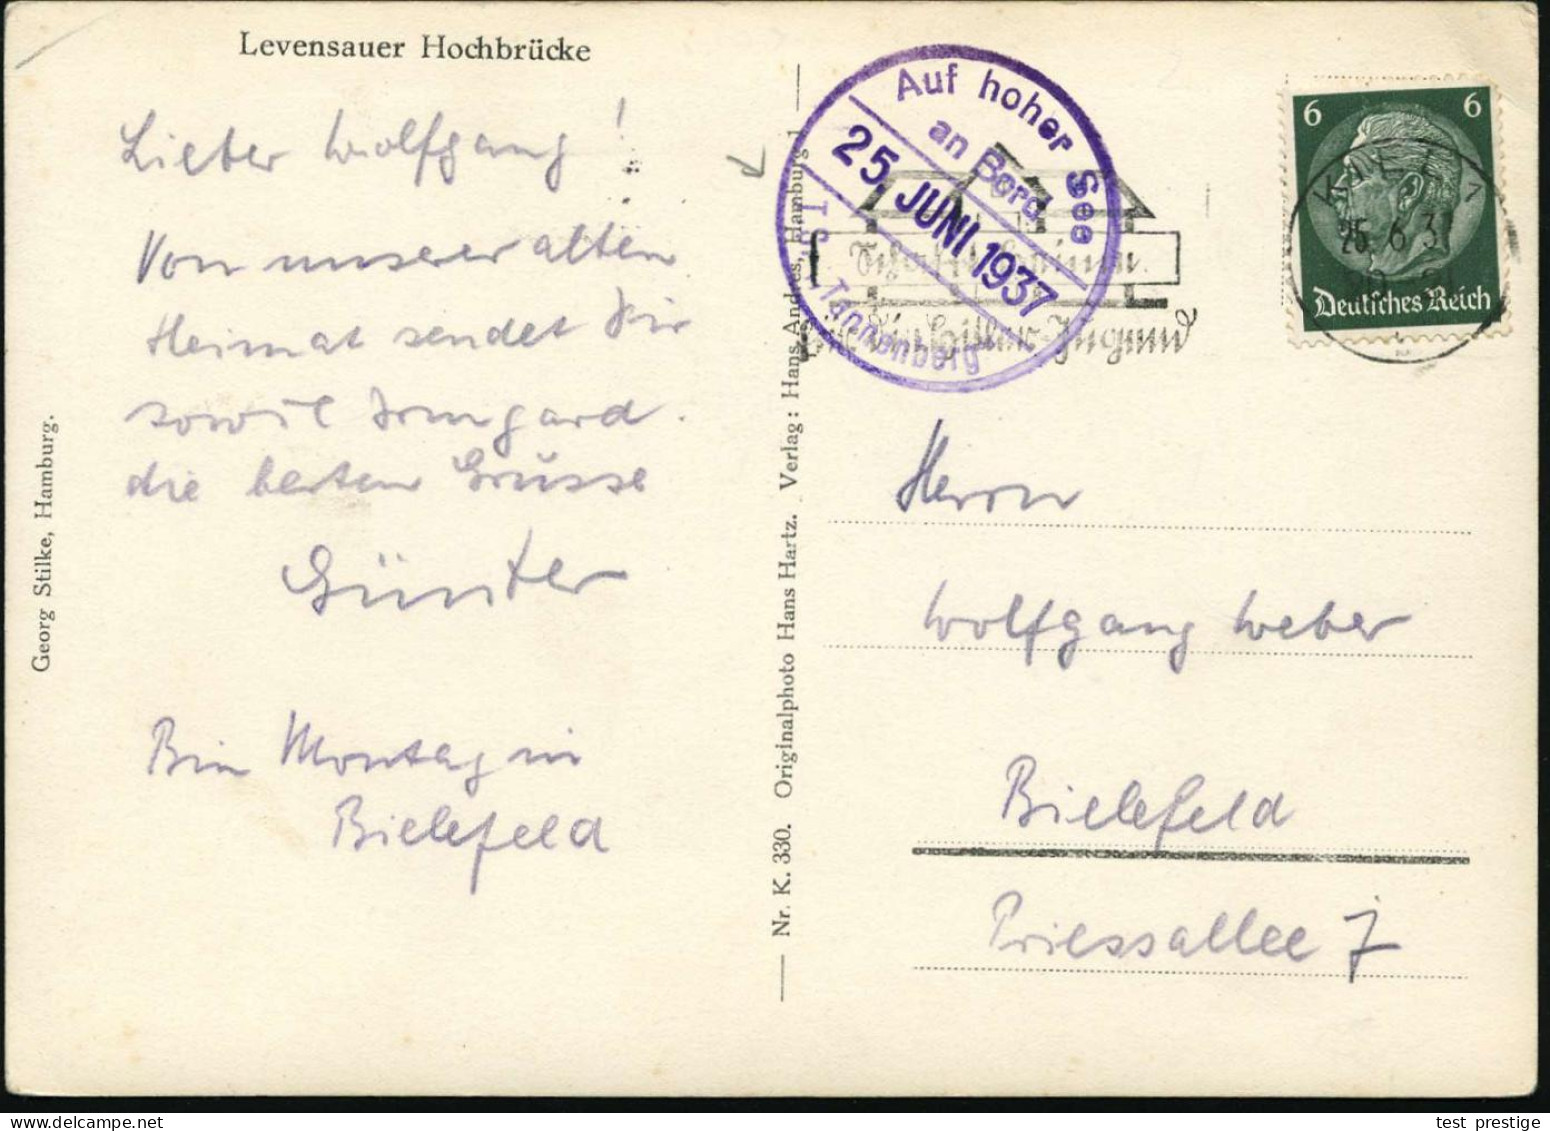 Levensauer Hochbrücke
Lieber Wolfgang!
Von unserer alten
Heimat sendet Dir
sowie Irmgard
die besten Grüsse
Günter
Bin Montag in
Bielefeld
Georg Stilke, Hamburg.
Nr. K. 330. Originalphoto Hans Hartz. Verlag: Hans Andres, Hamburg 1
Auf hoher See
an Bord
25. JUNI 1937
Tannenberg
Hitler-Jugend
6 6
Deutsches Reich
KIEL 1
25.6.37
Herrn
Wolfgang Weber
Bielefeld
Priessallee 7
test prestige